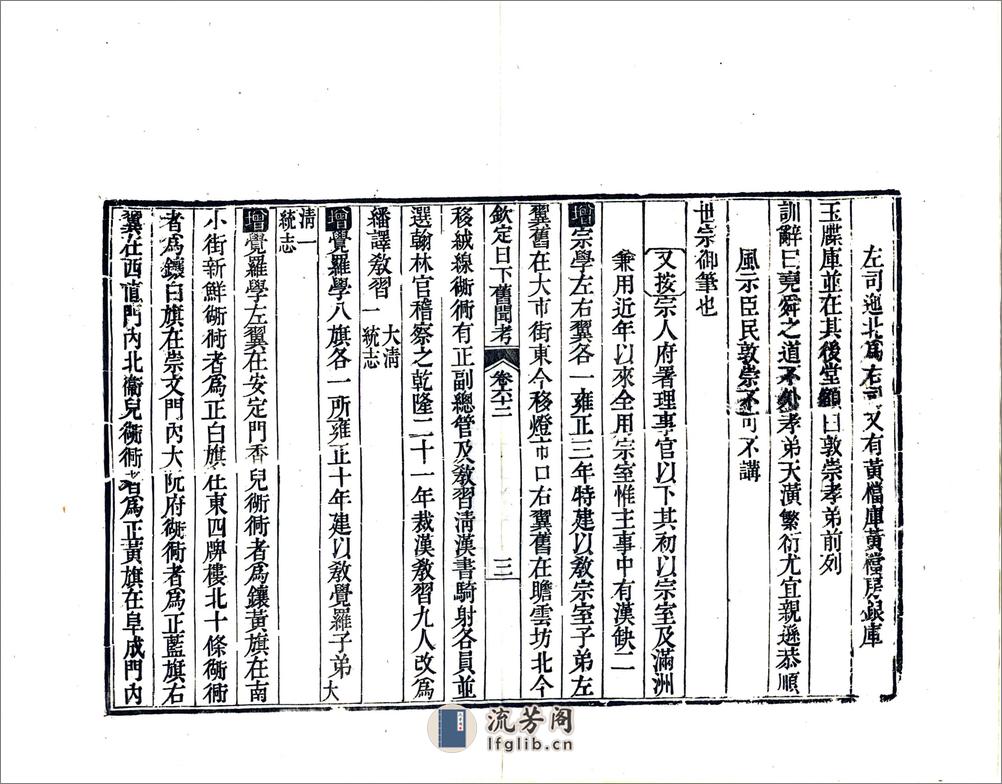 左司迤北爲右司又有黃檔庫黃檔房銀庫
玉牒庫並在其後堂額曰敦崇孝弟前列
訓辭曰堯舜之道不外孝弟天潢繁衍尤宜親遜恭順
風示臣民敦崇不可不講
世宗御筆也
又按宗人府署理事官以下其初以宗室及滿洲
兼用近年以來全用宗室惟主事中有漢缺二
增宗學左右翼各一雍正三年特建以敎宗室子弟左
翼舊在大市街東今移燈市口右翼舊在瞻雲坊北今
欽定日下舊聞考 卷六十二 三
移絨線衚衕有正副總管及敎習淸漢書騎射各員並
選翰林官稽察之乾隆二十一年裁漢敎習九人改爲
繙譯敎習大淸一統志
增覺羅學八旗各一所雍正十年建以敎覺羅子弟大
淸一統志
增覺羅學左翼在安定門香兒衚衕者爲鑲黃旗在南
小街新鮮衚衕者爲正白旗在東四牌樓北十條衚衕
者爲鑲白旗在崇文門內大阮府衚衕者爲正藍旗右
翼在西直門內北衞兒衚衕者爲正黃旗在阜成門內
流芳阁
lfglib.cn